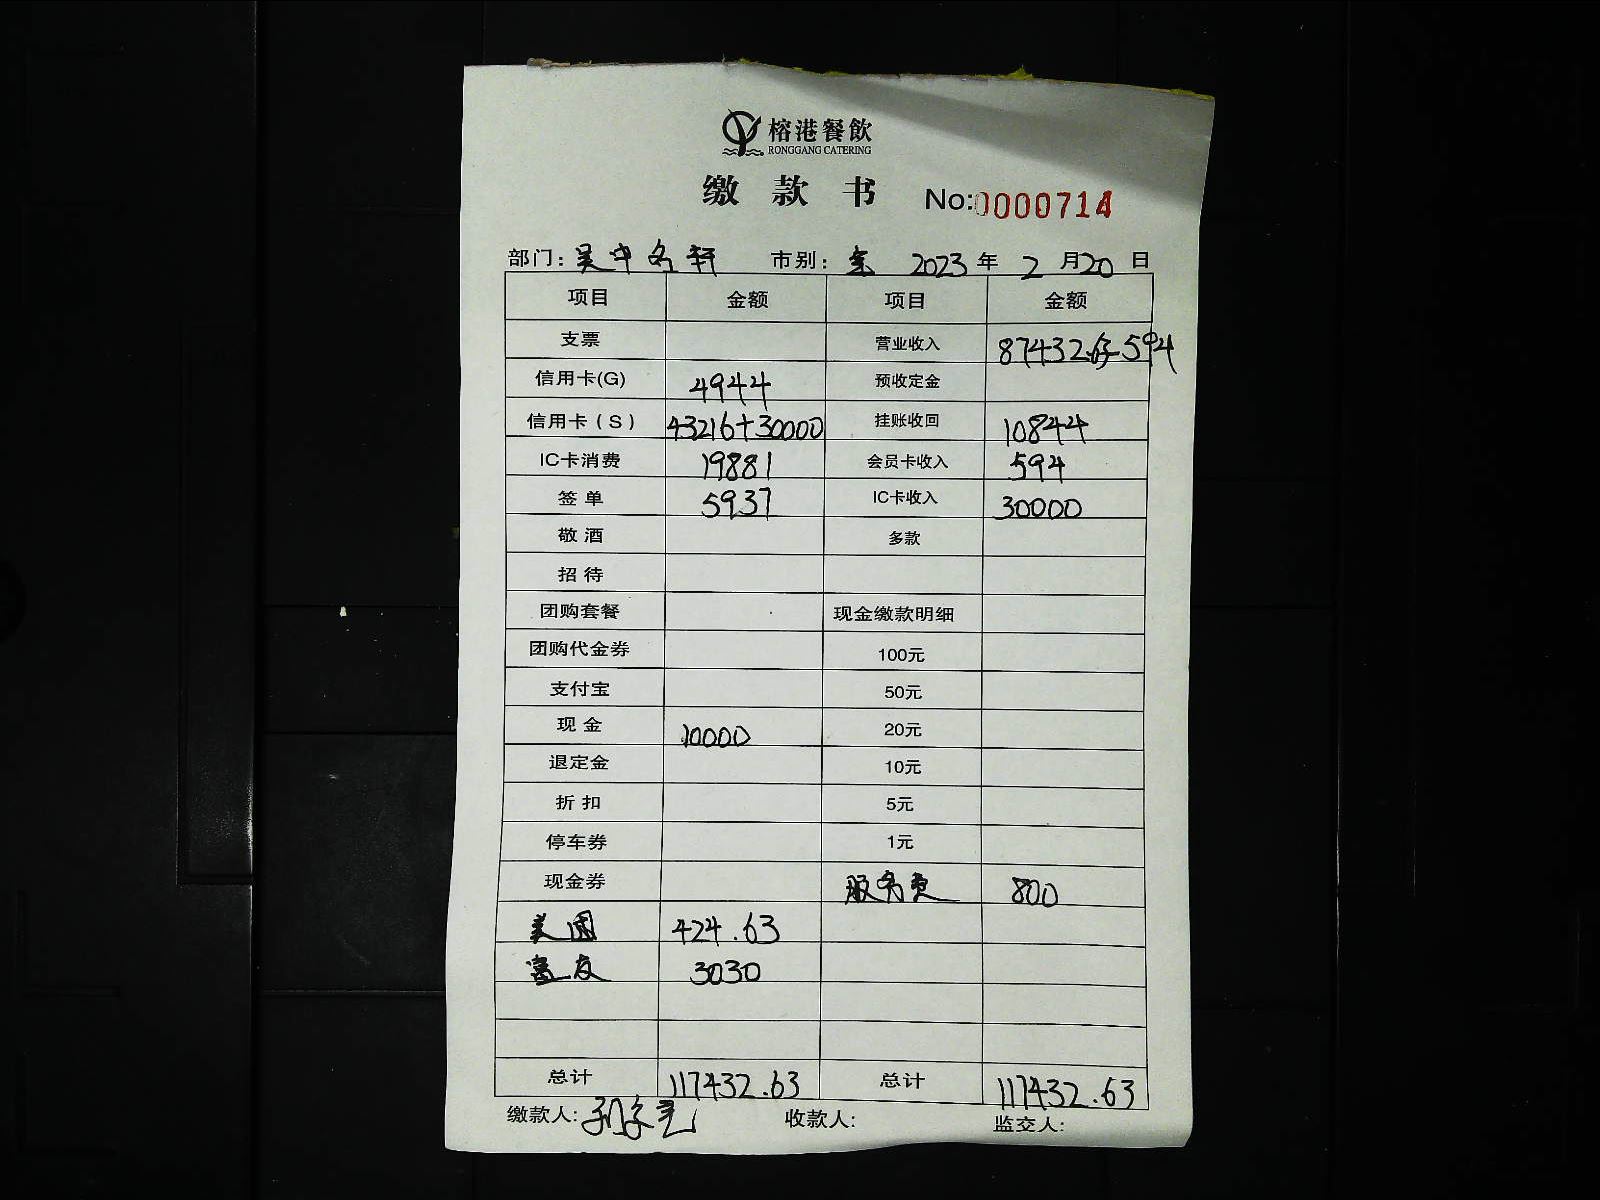 榕港餐飲
RONGGANG CATERING
缴款书 No:0000714
部门: 吴中名轩 市别: 2023年2月20日
项目 金额 项目 金额
支票 营业收入 87432.63 594
信用卡(G) 4944 预收定金
信用卡(S) 43216+30000 挂账收回 10844
IC卡消费 19881 会员卡收入 594
签单 5937 IC卡收入 30000
敬酒 多款
招待
团购套餐 现金缴款明细
团购代金券 100元
支付宝 50元
现金 10000 20元
退定金 10元
折扣 5元
停车券 1元
现金券 服务费 800
美团 424.63
富友 3030
总计 117432.63 总计 117432.63
缴款人: 收款人: 监交人: